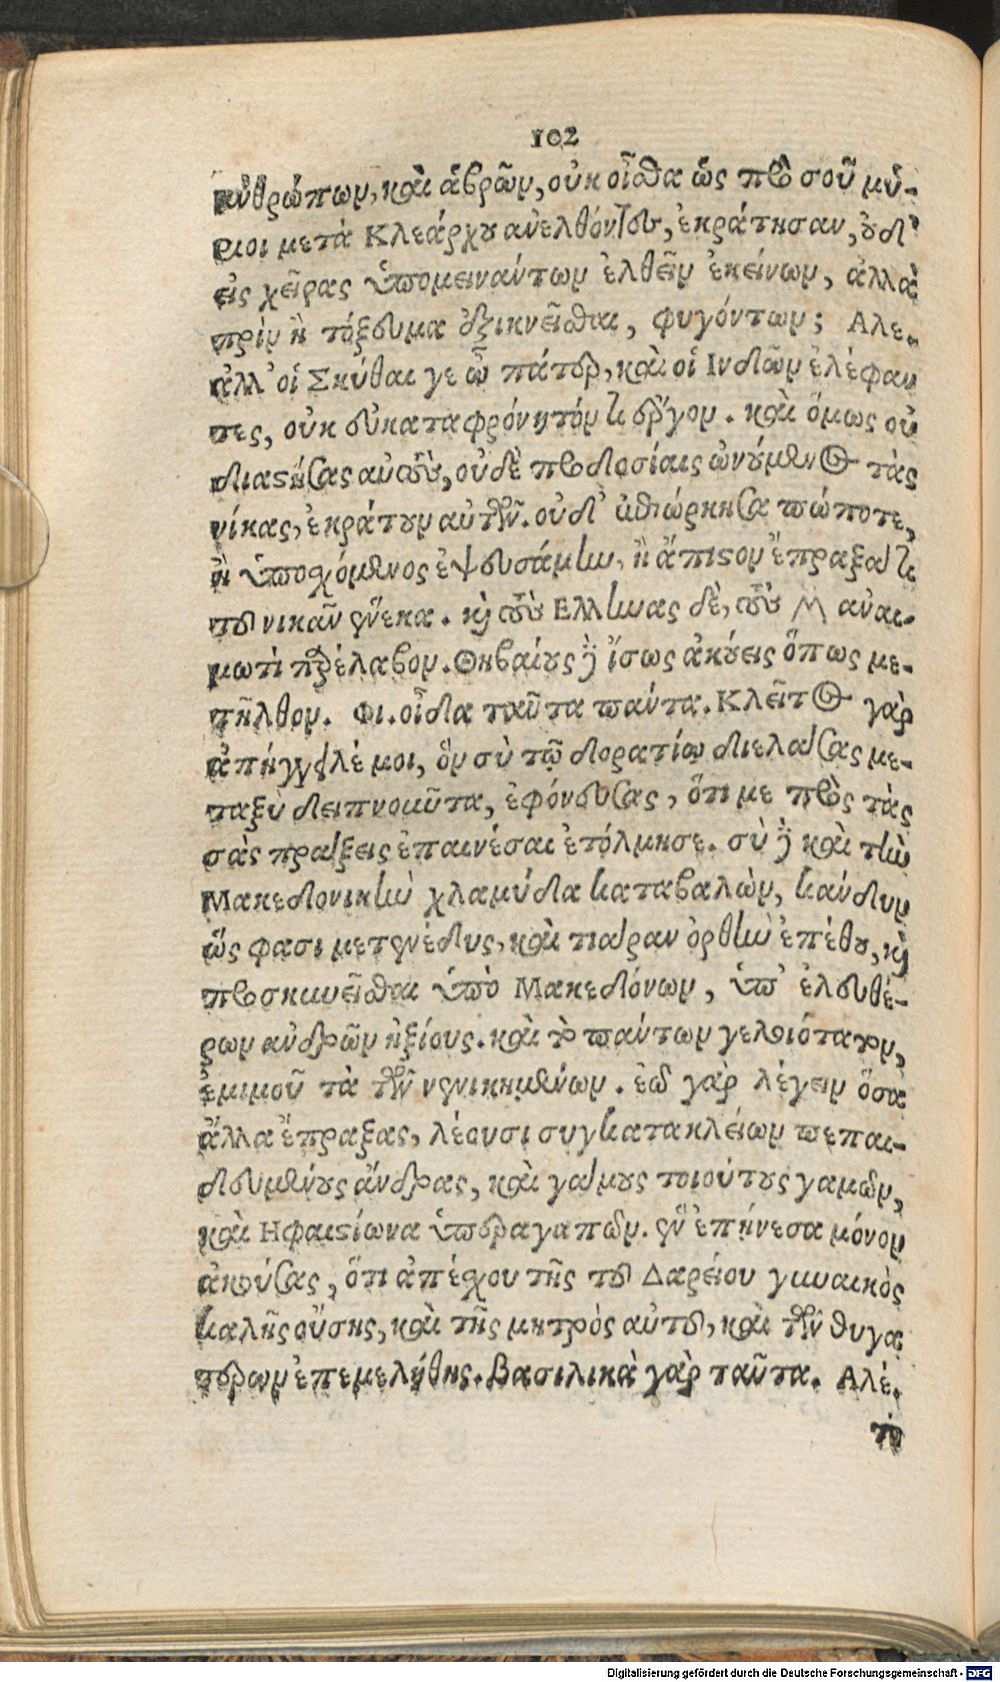 102
ἀνθρώπων, καὶ ἁβρῶν, οὐκ οἶσθα ὡς πρὸ σοῦ μύ-
ριοι μετὰ Κλεάρχου ἀνελθόντες, ἐκράτησαν, οὐδ'
εἰς χεῖρας ὑπομεινάντων ἐλθεῖν ἐκείνων, ἀλλὰ
πρὶν ἢ τόξευμα ἐξικνεῖσθαι, φυγόντων; Αλε.
ἀλλ' οἱ Σκύθαι γε ὦ πάτερ, καὶ οἱ Ινδῶν ἐλέφαν
τες, οὐκ εὐκαταφρόνητόν τι ἔργον. καὶ ὅμως οὐ
διαστήσας αὐτοὺς, οὐδὲ προδοσίαις ὠνούμενος τὰς
νίκας, ἐκράτουν αὐτῶν. οὐδ' ἐπιώρκησα πώποτε,
ἢ ὑποσχόμενος ἐψευσάμην, ἢ ἄπιστον ἔπραξά τι
τοῦ νικᾶν ἕνεκα. καὶ τοὺς Ελληνας δὲ, τοὺς μὲν ἀναι-
μωτὶ παρέλαβον. Θηβαίους δὲ ἴσως ἀκούεις ὅπως με-
τῆλθον. Φι. οἶδα ταῦτα πάντα. Κλεῖτος γὰρ
ἀπήγγειλέ μοι, ὃν σὺ τῷ δορατίῳ διελάσας με-
ταξὺ δειπνοῦντα, ἐφόνευσας, ὅτι με πρὸς τὰς
σὰς πράξεις ἐπαινέσαι ἐτόλμησε. σὺ δὲ καὶ τὴν
Μακεδονικὴν χλαμύδα καταβαλὼν, κάνδυν
ὥς φασι μετενέδυς, καὶ τιάραν ὀρθὴν ἐπέθου, καὶ
προσκυνεῖσθαι ὑπὸ Μακεδόνων, ὑπ' ἐλευθέ-
ρων ἀνδρῶν ἠξίους. καὶ τὸ πάντων γελοιότατον,
ἐμιμοῦ τὰ τῶν νενικημένων. ἐῶ γὰρ λέγειν ὅσα
ἄλλα ἔπραξας, λέουσι συγκατακλείων πεπαι-
δευμένους ἄνδρας, καὶ γάμους τοιούτους γαμῶν,
καὶ Ηφαιστίωνα ὑπεραγαπῶν. ἓν ἐπῄνεσα μόνον
ἀκούσας, ὅτι ἀπέσχου τῆς τοῦ Δαρείου γυναικὸς
καλῆς οὔσης, καὶ τῆς μητρὸς αὐτοῦ, καὶ τῶν θυγα
τέρων ἐπεμελήθης. βασιλικὰ γὰρ ταῦτα. Αλέ.
τὸ